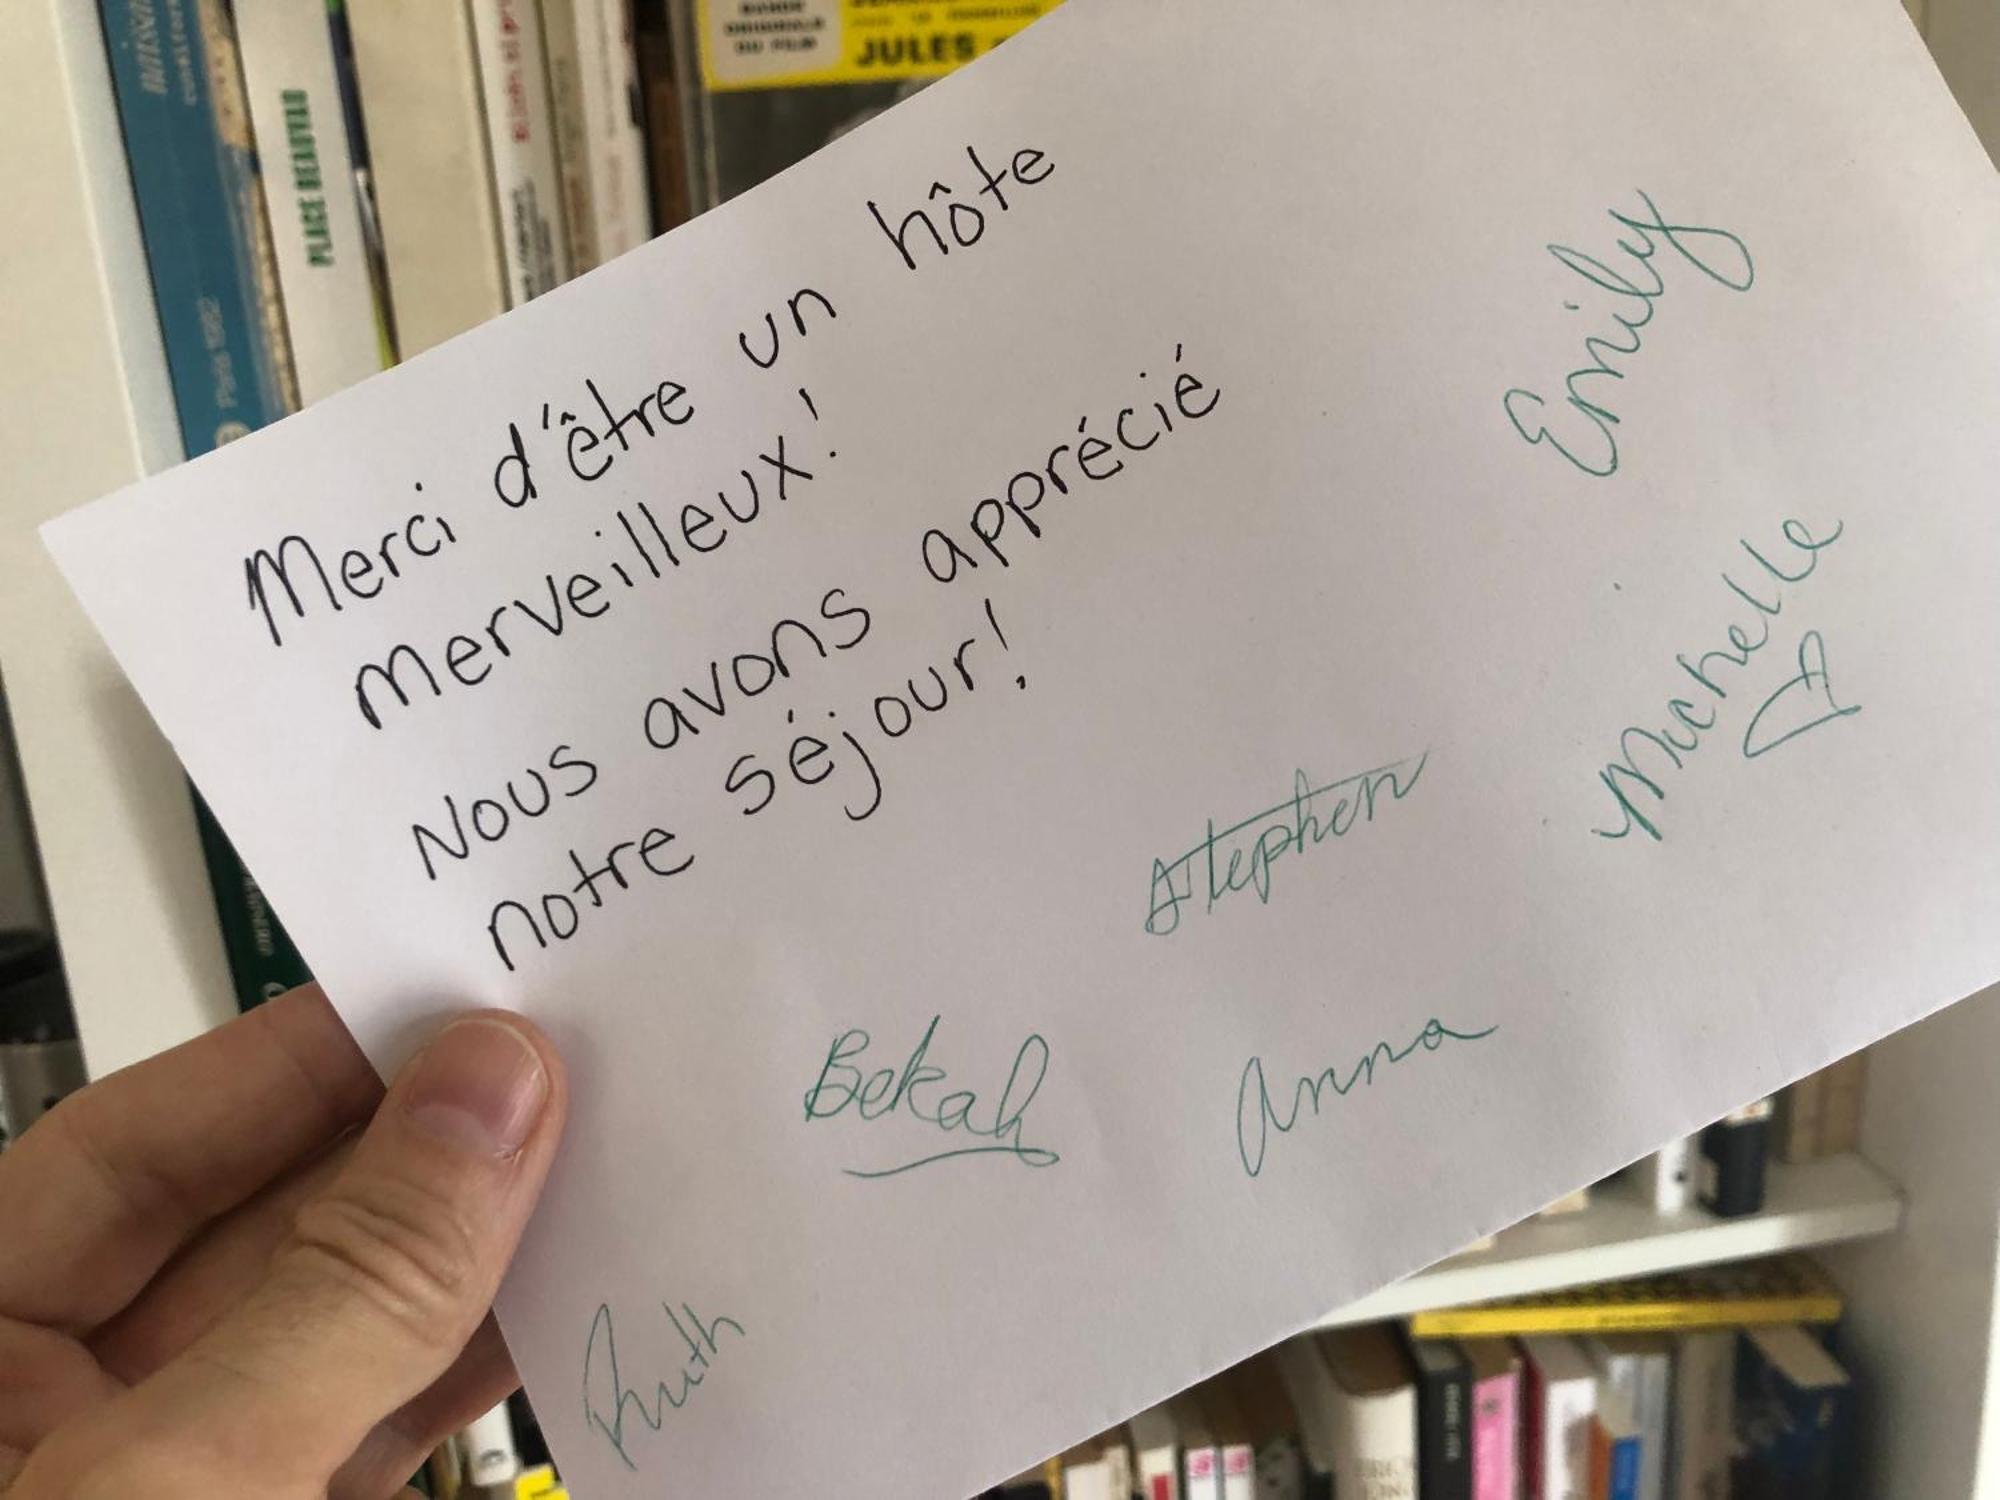 BANDE
ORIGINALE
DU FILM
JULES
PLACE BEAUVAU
Merci d'être un hôte
merveilleux!
Nous avons apprécié
notre séjour!
Emily
Michelle
Stephen
Bekah
Anna
Ruth